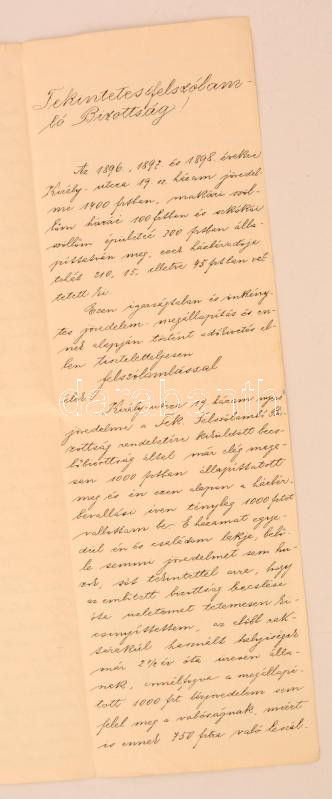 Tekintetes felszólam-
ló Bizottság!
Az 1896, 1897. és 1898. évekre
Király-utcza 19 sz. házam jövedel-
me 1400 frtban, makári szől-
lőm házáé 100 frtban és
szőllőm épületéé 300 frtban álla-
píttatván meg, ezek házbéradója
210, 15. illetve 45 frtban vet-
tetett ki.
Ezen igazságtalan és önkény-
tes jövedelem-megállapítás és en-
nek alapján történt adókivetés el-
len tiszteletteljesen
felszólamlással
élek.
Király-utcza 19 házam
jövedelme a Tek. Felszólamlási Bi-
zottság rendeletére kiküldött becs-
lőbizottság által már elég maga-
san 1000 frtban állapíttatott
meg és én ezen alapon a házbér-
bevallási íven tényleg 1000 frtot
vallottam be. E házamat egye-
dül én és családom lakja, belő-
le semmi jövedelmet sem hú-
zok, sőt tekintettel arra, hogy
az említett bizottság becslése
óta üzletemet tetemesen ki-
csinyítettem, az előbb rak-
tárakúl használt helyiségek
már 2½ év óta üresen álla-
nak, ennélfogva a megállapí-
tott 1000 frt bérjövedelem sem
felel meg a valóságnak, miért
is ennek 750 frtra való leszál-
darabanth